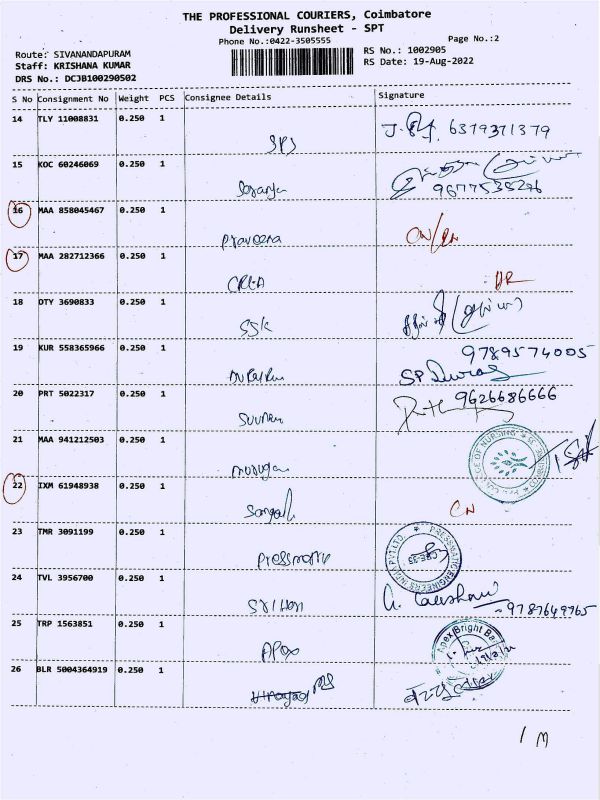 THE PROFESSIONAL COURIERS, Coimbatore
Delivery Runsheet - SPT
Phone No.:0422-3505555
Page No.:2
Route: SIVANANDAPURAM
Staff: KRISHANA KUMAR
DRS No.: DCJB100290502
RS No.: 1002905
RS Date: 19-Aug-2022
S No Consignment No Weight PCS Consignee Details Signature
14 TLY 11008831 0.250 1
SPS
6379371379
15 KOC 60246069 0.250 1
Saranya
9677535276
16 MAA 858045467 0.250 1
Praveena
17 MAA 282712366 0.250 1
DR
18 DTY 3690833 0.250 1
SSK
19 KUR 558365966 0.250 1
9789574005
SP
20 PRT 5022317 0.250 1
9626686666
21 MAA 941212503 0.250 1
murugan
COLLEGE OF NURSING
22 IXM 61948938 0.250 1
CN
23 TMR 3091199 0.250 1
Pressmatic
PRESSMATIC ENGINEERS INDIA PVT.LTD.
24 TVL 3956700 0.250 1
Sri Hari
9787649765
25 TRP 1563851 0.250 1
Apex
Apex Bright Bar
26 BLR 5004364919 0.250 1